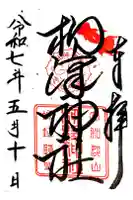 奉拝
柳澤神社
令和七年五月十日